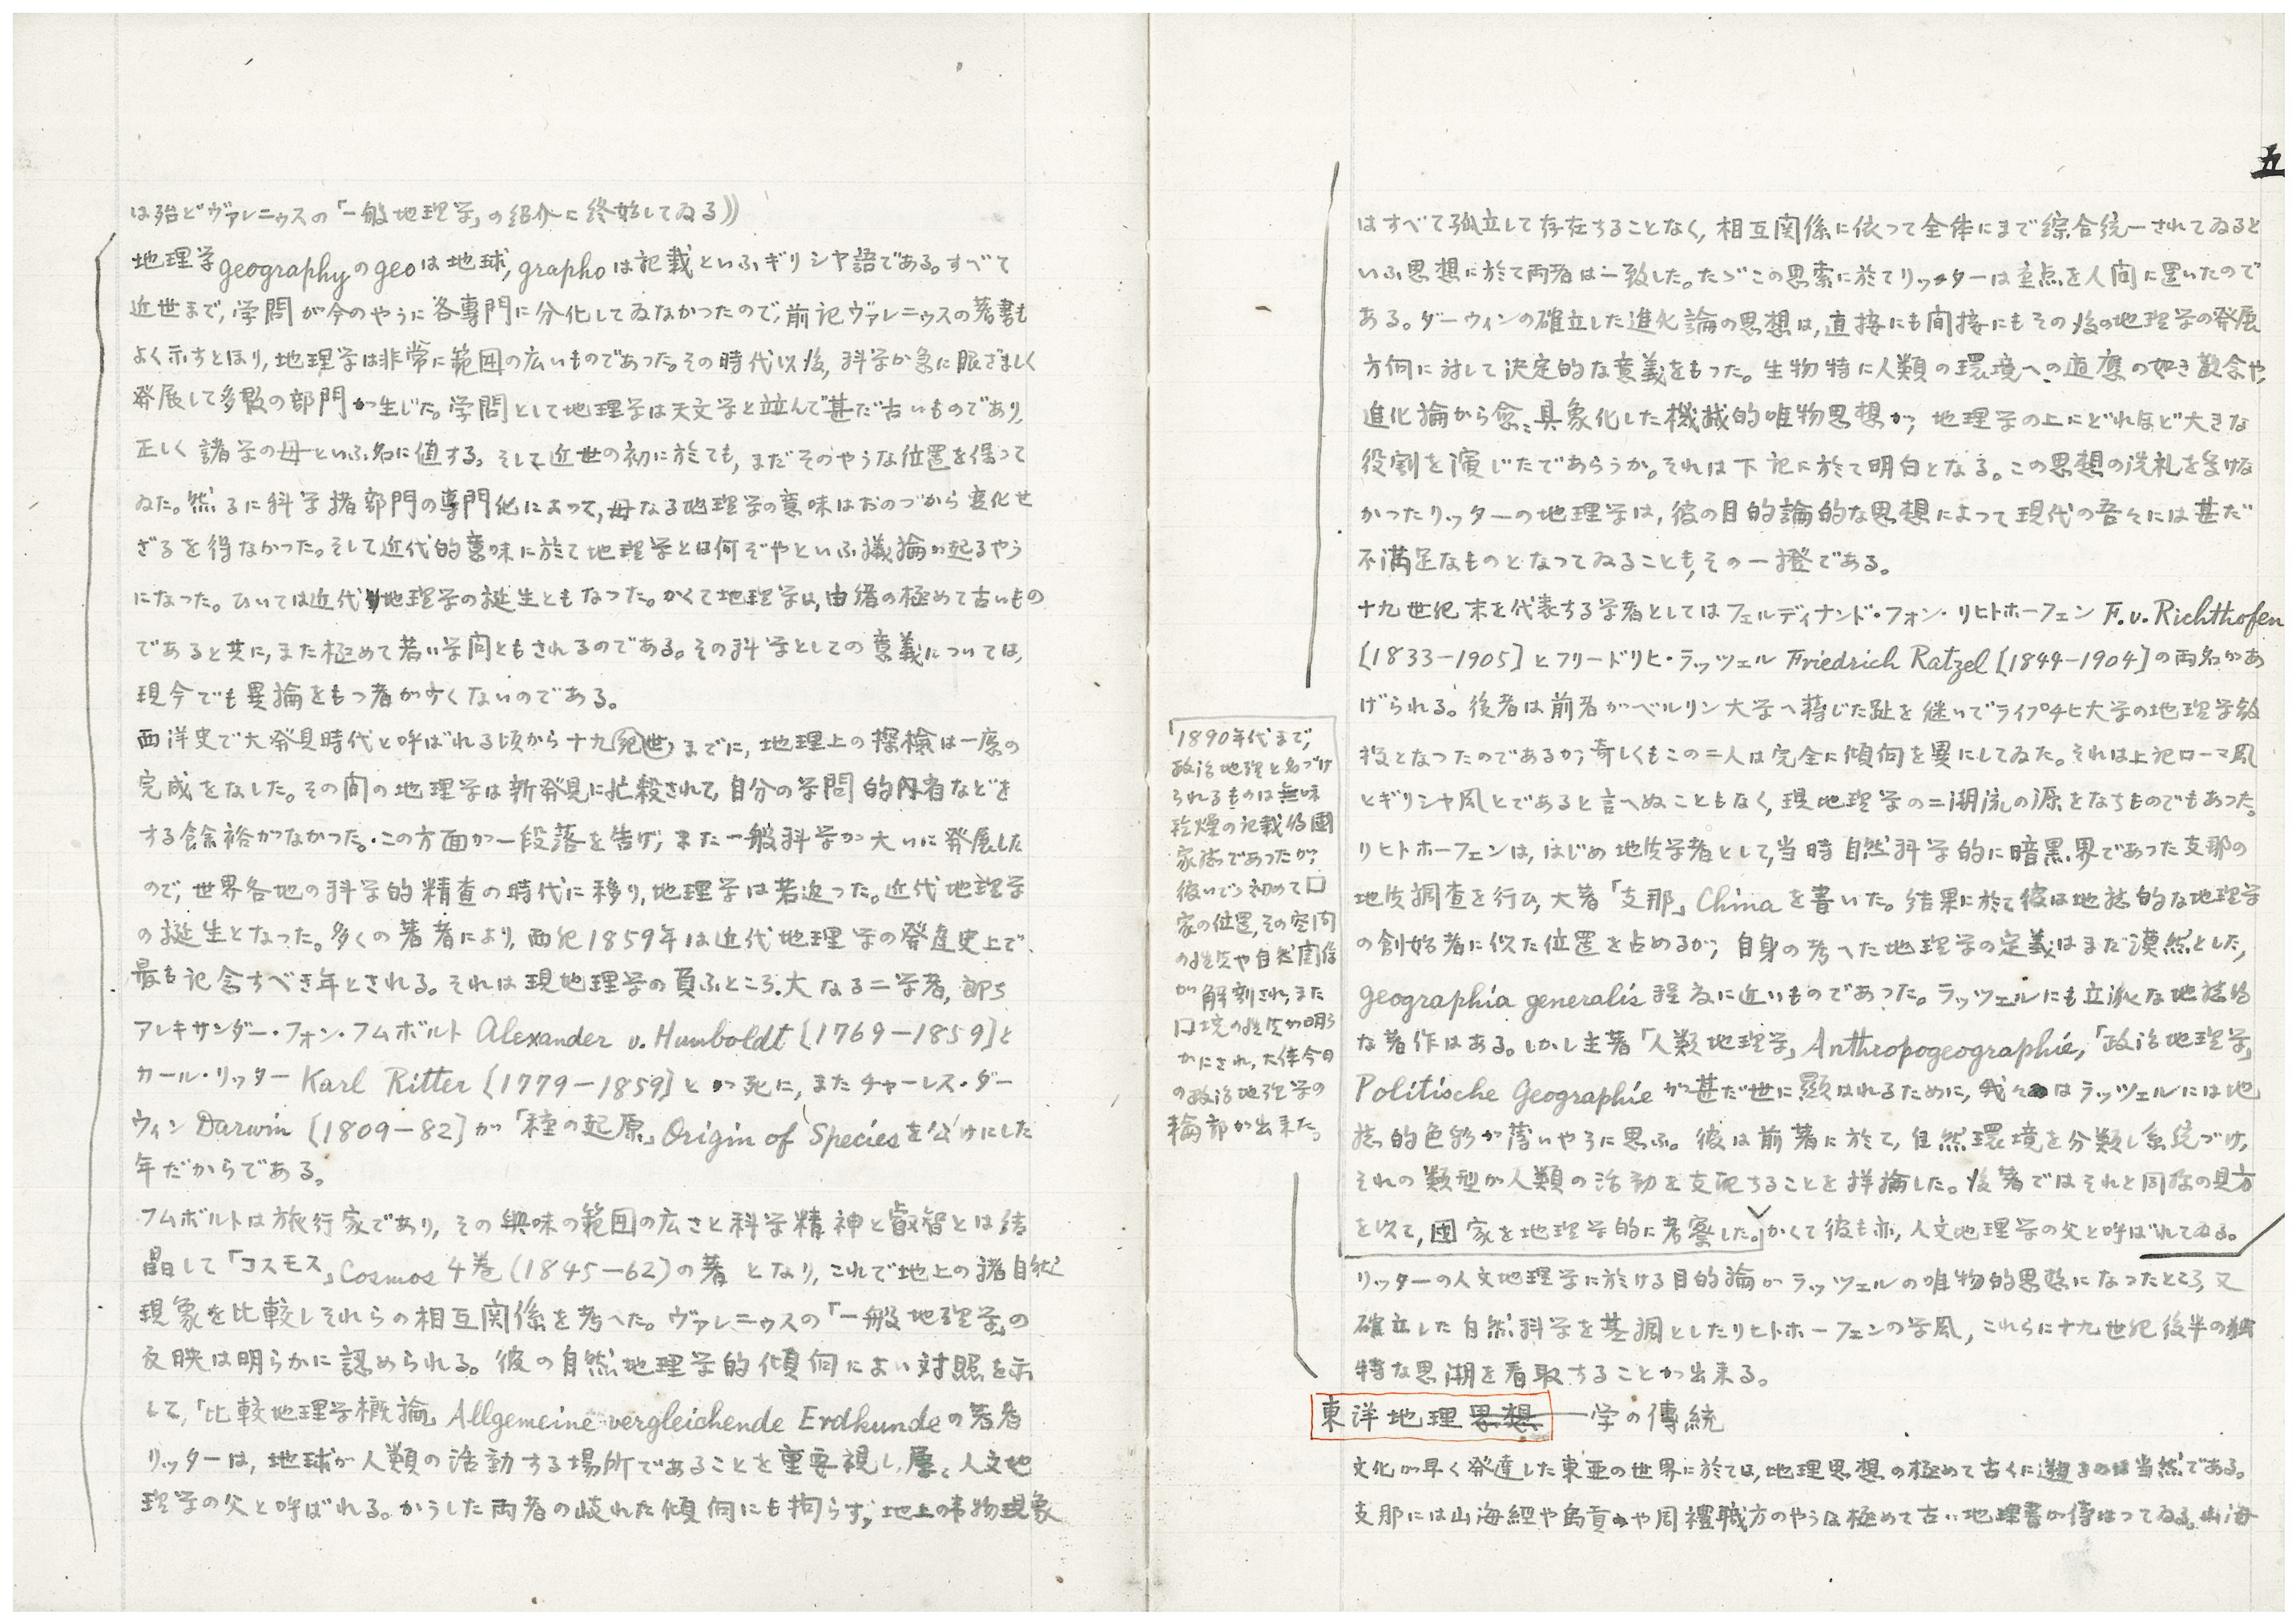 は殆どヴァレニウスの「一般地理学」の紹介に終始してゐる))
地理学geographyのgeoは地球, graphoは記載といふギリシヤ語である。すべて
近世まで, 学問が今のやうに各専門に分化してゐなかつたので, 前記ヴァレニウスの著書も
よく示すとほり, 地理学は非常に範囲の広いものであつた。その時代以後, 科学が急に眼ざましく
発展して多数の部門が生じた。学問として地理学は天文学と竝んで甚だ古いものであり,
正しく諸学の母といふ名に値する。そして近世の初に於ても, まだそのやうな位置を保つて
ゐた。然るに科学諸部門の専門化によつて, 母なる地理学の意味はおのづから変化せ
ざるを得なかつた。そして近代的意味に於て地理学とは何ぞやといふ議論が起るやう
になつた。ひいては近代地理学の誕生ともなつた。かくて地理学は, 由緒の極めて古いもの
であると共に, また極めて若い学問ともされるのである。その科学としての意義については,
現今でも異論をもつ者が少くないのである。
西洋史で大発見時代と呼ばれる頃から十九紀世までに, 地理上の探検は一應の
完成をなした。その間の地理学は新発見に忙殺されて, 自分の学問的内省などを
する餘裕がなかつた。この方面が一段落を告げ, また一般科学が大いに発展した
ので, 世界各地の科学的精査の時代に移り, 地理学は若返つた。近代地理学
の誕生となつた。多くの著者により, 西紀1859年は近代地理学の発達史上で
最も記念すべき年とされる。それは現地理学の負ふところ大なる二学者, 即ち
アレキサンダー・フォン・フムボルト Alexander v. Humboldt [1769—1859]と
カール・リッター Karl Ritter [1779—1859]とが死に, またチャーレス・ダー
ウィン Darwin [1809—82]が「種の起原」Origin of Speciesを公けにした
年だからである。
フムボルトは旅行家であり, その興味の範囲の広さと科学精神と叡智とは結
晶して「コスモス」Cosmos 4巻(1845—62)の著となり, これで地上の諸自然
現象を比較しそれらの相互関係を考へた。ヴァレニウスの「一般地理学」の
反映は明らかに認められる。彼の自然地理学的傾向によい対照を示
して,「比較地理学概論」Allgemeine vergleichende Erdkundeの著者
リッターは, 地球が人類の活動する場所であることを重要視し, 屢〻人文地
理学の父と呼ばれる。かうした両者の岐れた傾向にも拘らず, 地上の事物現象
五
はすべて孤立して存在することなく, 相互関係に依つて全体にまで綜合統一されてゐると
いふ思想に於て両者は一致した。たゞこの思索に於てリッターは重点を人間に置いたので
ある。ダーウィンの確立した進化論の思想は, 直接にも間接にもその後の地理学の発展
方向に対して決定的な意義をもつた。生物特に人類の環境への適應の如き觀念や,
進化論から愈〻具象化した機械的唯物思想が, 地理学の上にどれほど大きな
役割を演じたであらうか。それは下記に於て明白となる。この思想の洗礼を受けな
かつたリッターの地理学は, 彼の目的論的な思想によつて現代の吾々には甚だ
不満足なものとなつてゐることも, その一證である。
十九世紀末を代表する学者としてはフェルディナンド・フォン・リヒトホーフェン F. v. Richthofen
[1833—1905]とフリードリヒ・ラッツェル Friedrich Ratzel [1844—1904]の両名があ
げられる。後者は前者がベルリン大学へ轉じた趾を継いでライプチヒ大学の地理学教
授となつたのであるが, 奇しくもこの二人は完全に傾向を異にしてゐた。それは上記ローマ風
とギリシヤ風とであると言へぬこともなく, 現地理学の二潮流の源をなすものでもあつた。
リヒトホーフェンは, はじめ地質学者として, 当時自然科学的に暗黒界であつた支那の
地質調査を行ひ, 大著「支那」Chinaを書いた。結果に於て彼は地誌的な地理学
の創始者に似た位置を占めるが, 自身の考へた地理学の定義はまだ漠然とした,
geographia generalis程度に近いものであつた。ラッツェルにも立派な地誌的
な著作はある。しかし主著「人類地理学」Anthropogeographie,「政治地理学」
Politische Geographieが甚だ世に顕はれるために, 我々はラッツェルには地
誌的色彩が薄いやうに思ふ。彼は前著に於て, 自然環境を分類し系統づけ,
それの類型が人類の活動を支配することを詳論した。後著ではそれと同様の見方
を以て, 國家を地理学的に考察した。かくて彼も亦, 人文地理学の父と呼ばれてゐる。
「1890年代まで,
政治地理と名づけ
られるものは無味
乾燥の記載的國
家誌であつたが,
彼いでゝ初めて囗
家の位置, その空間
の性質や自然関係
が解剖され, また
囗境の性質が明ら
かにされ, 大体今日
の政治地理学の
輪郭が出来た。
リッターの人文地理学に於ける目的論がラッツェルの唯物的思想になつたところ, 又
確立した自然科学を基調としたリヒトホーフェンの学風, これらに十九世紀後半の独
特な思潮を看取することが出来る。
東洋地理思想 学の傳統
文化が早く発達した東亜の世界に於ては, 地理思想の極めて古くに遡るのは当然である。
支那には山海經や禹貢や周禮職方のやうな極めて古い地理書が傳はつてゐる。山海